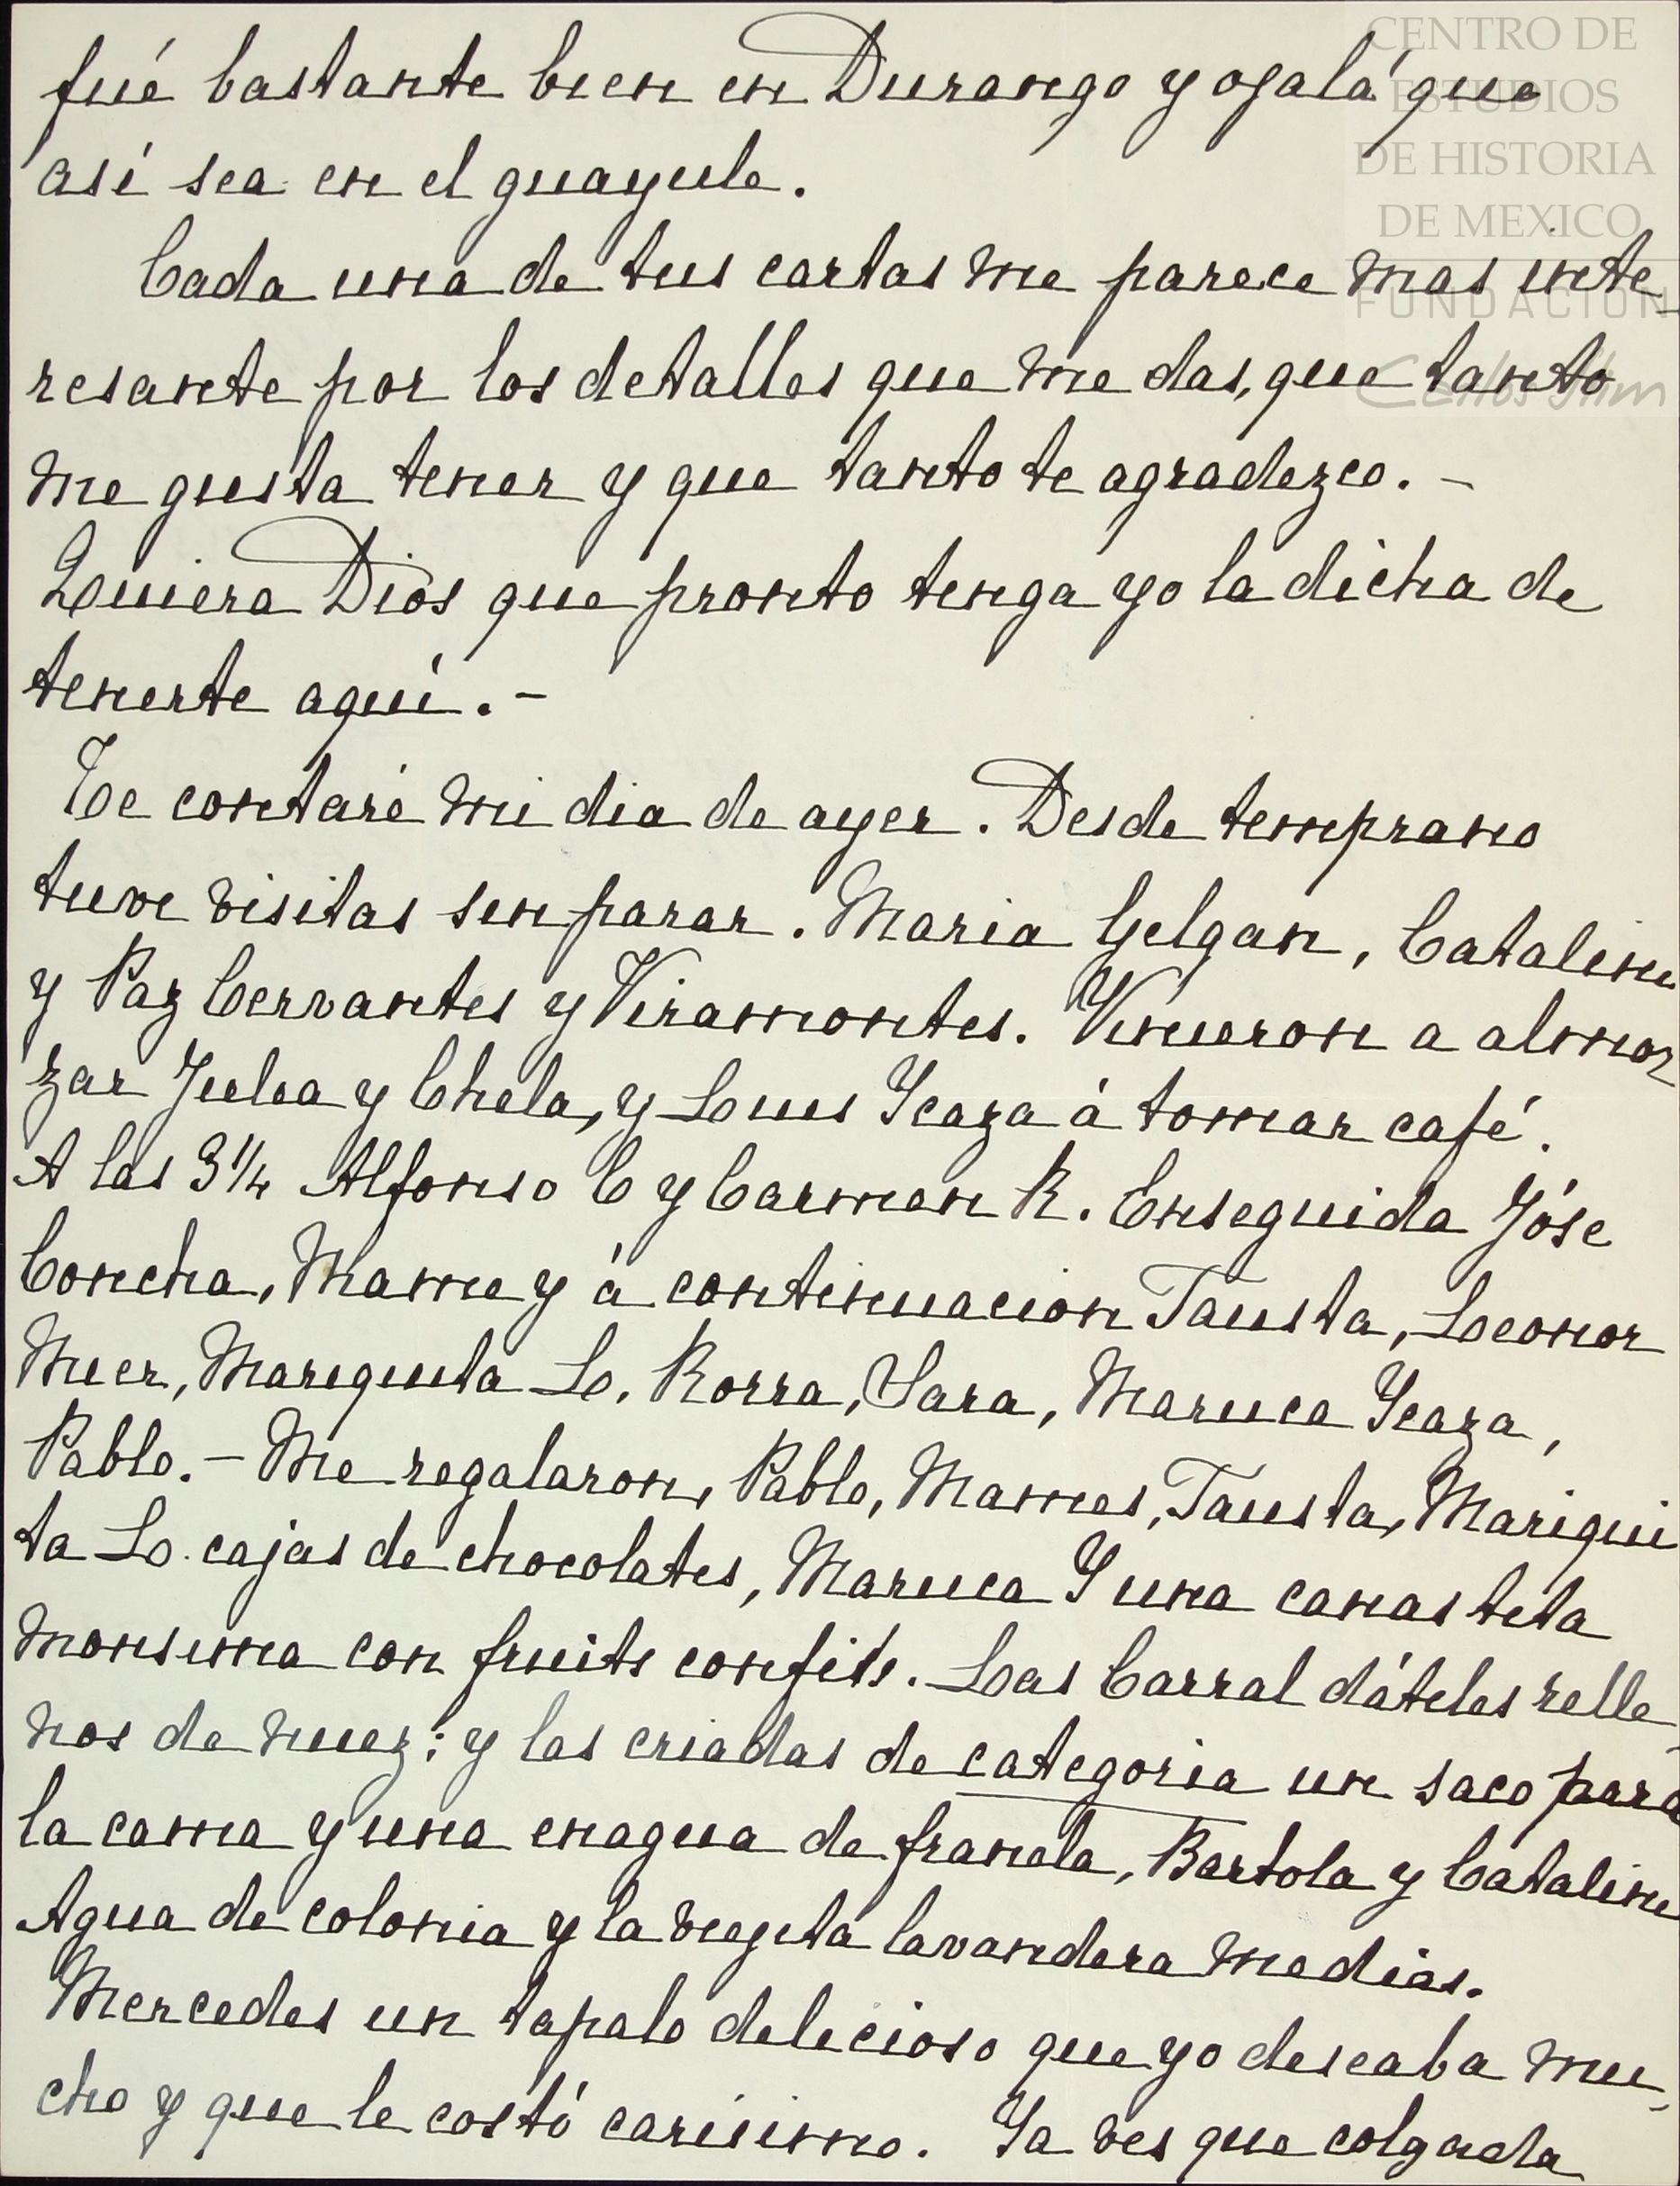 CENTRO DE
ESTUDIOS
DE HISTORIA
DE MEXICO
FUNDACION
Carlos Slim
fué bastante bien en Durango y ojalá que
así sea en el guayule.
Cada una de tus cartas me parece mas inte-
resante por los detalles que me das, que tanto
me gusta tener y que tanto te agradezco. -
Quiera Dios que pronto tenga yo la dicha de
tenerte aquí. -
Te contaré mi dia de ayer. Desde temprano
tuve visitas sin parar. Maria Gelgan, Catalina
y Paz Cervantes y Viramontes. Vinieron a almor
zar Julia y Chela, y Luis Ycaza á tomar café.
A las 3 1/4 Alfonso C y Carmen R. Enseguida Jóse
Concha, Mame y á continuacion Fausta, Leonor
Mier, Mariquita L. Rorra, Sara, Maruca Ycaza,
Pablo. - Me regalaron, Pablo, Mames, Fausta, Mariqui
ta L. cajas de chocolates, Maruca Y una canastita
monisima con fruits confits. Las Corral dátiles relle-
nos de nuez; y las criadas de categoria un saco para
la cama y una enagua de franela, Bartola y Catalina
Agua de colonia y la viejita lavandera medias.
Mercedes un tapalo delicioso que yo deseaba mu-
cho y que le costó carisimo. Ya ves que colgada